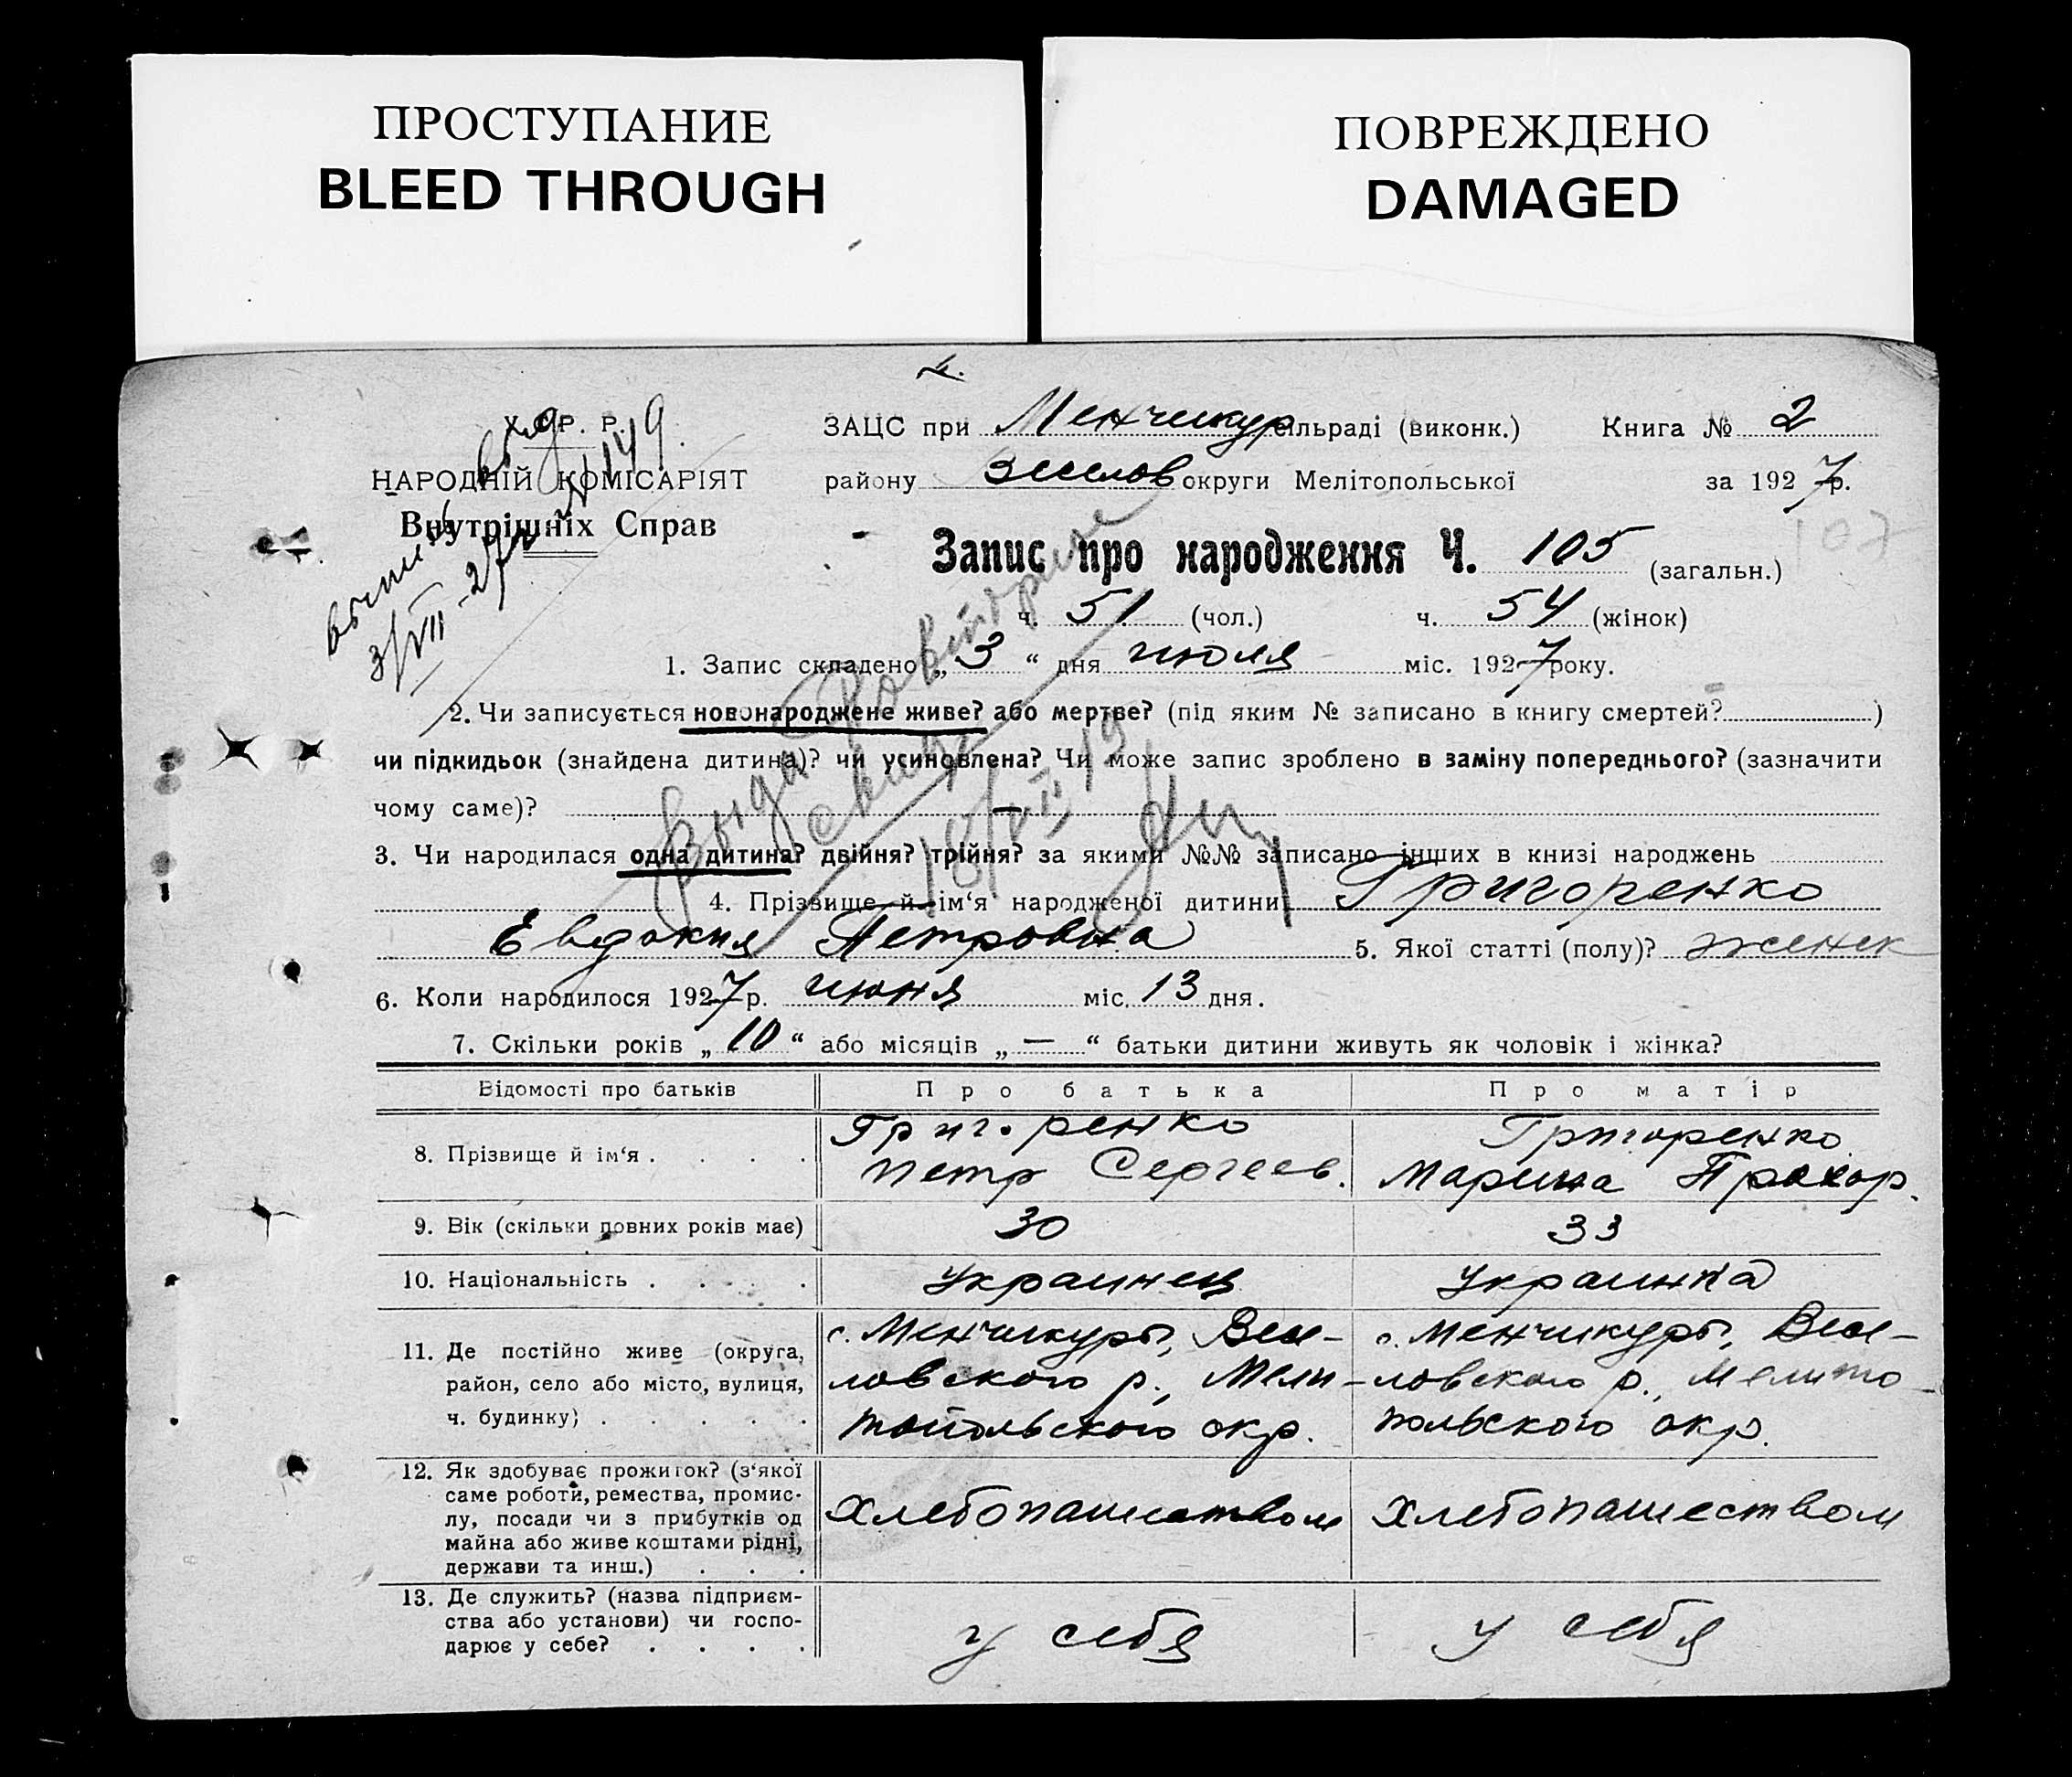 ПРОСТУПАНИЕ
BLEED THROUGH
ПОВРЕЖДЕНО
DAMAGED
ЗАЦС при Менчикур сільраді (виконк.) Книга № 2
НАРОДНІЙ КОМІСАРІЯТ
району Веселов округи Мелітопольської за 1927 р.
Внутрішніх Справ
Запис про народження Ч. 105 (загальн.)
107
ч. 51 (чол.) ч. 54 (жінок)
3/VII-27
№ 149
1. Запис складено „ 3 “ дня июля міс. 1927 року.
2. Чи записується новонароджене живе? або мертве? (під яким № записано в книгу смертей? )
чи підкидьок (знайдена дитина)? чи усиновлена? Чи може запис зроблено в заміну попереднього? (зазначити
чому саме)? —
Выдано вторичное
свид
3. Чи народилася одна дитина? двійня? трійня? за якими №№ записано інших в книзі народжень
4. Прізвище й ім‘я народженої дитини Григоренко
Евдокия Петровна 5. Якої статті (полу)? женск
6. Коли народилося 1927 р. июня міс. 13 дня.
7. Скільки років „ 10 “ або місяців „ — “ батьки дитини живуть як чоловік і жінка?
Відомості про батьків Про батька Про матір
8. Прізвище й ім‘я . . . .
Григоренко
Петр Сергеев.
Григоренко
Марина Прохор.
9. Вік (скільки повних років має) 30 33
10. Національність . . . . Украинец Украинка
11. Де постійно живе (округа,
район, село або місто, вулиця,
ч. будинку) . . . . .
с. Менчикуры, Весе-
ловского р., Мели-
топольского окр.
с. Менчикуры, Весе-
ловского р., Мелито-
польского окр.
12. Як здобуває прожиток? (з‘якої
саме роботи, ремества, промис-
лу, посади чи з прибутків од
майна або живе коштами рідні,
держави та инш.) . . .
хлебопашеством
хлебопашеством
13. Де служить? (назва підприєм-
ства або установи) чи госпо-
дарює у себе? . . . .
у себя
у себя